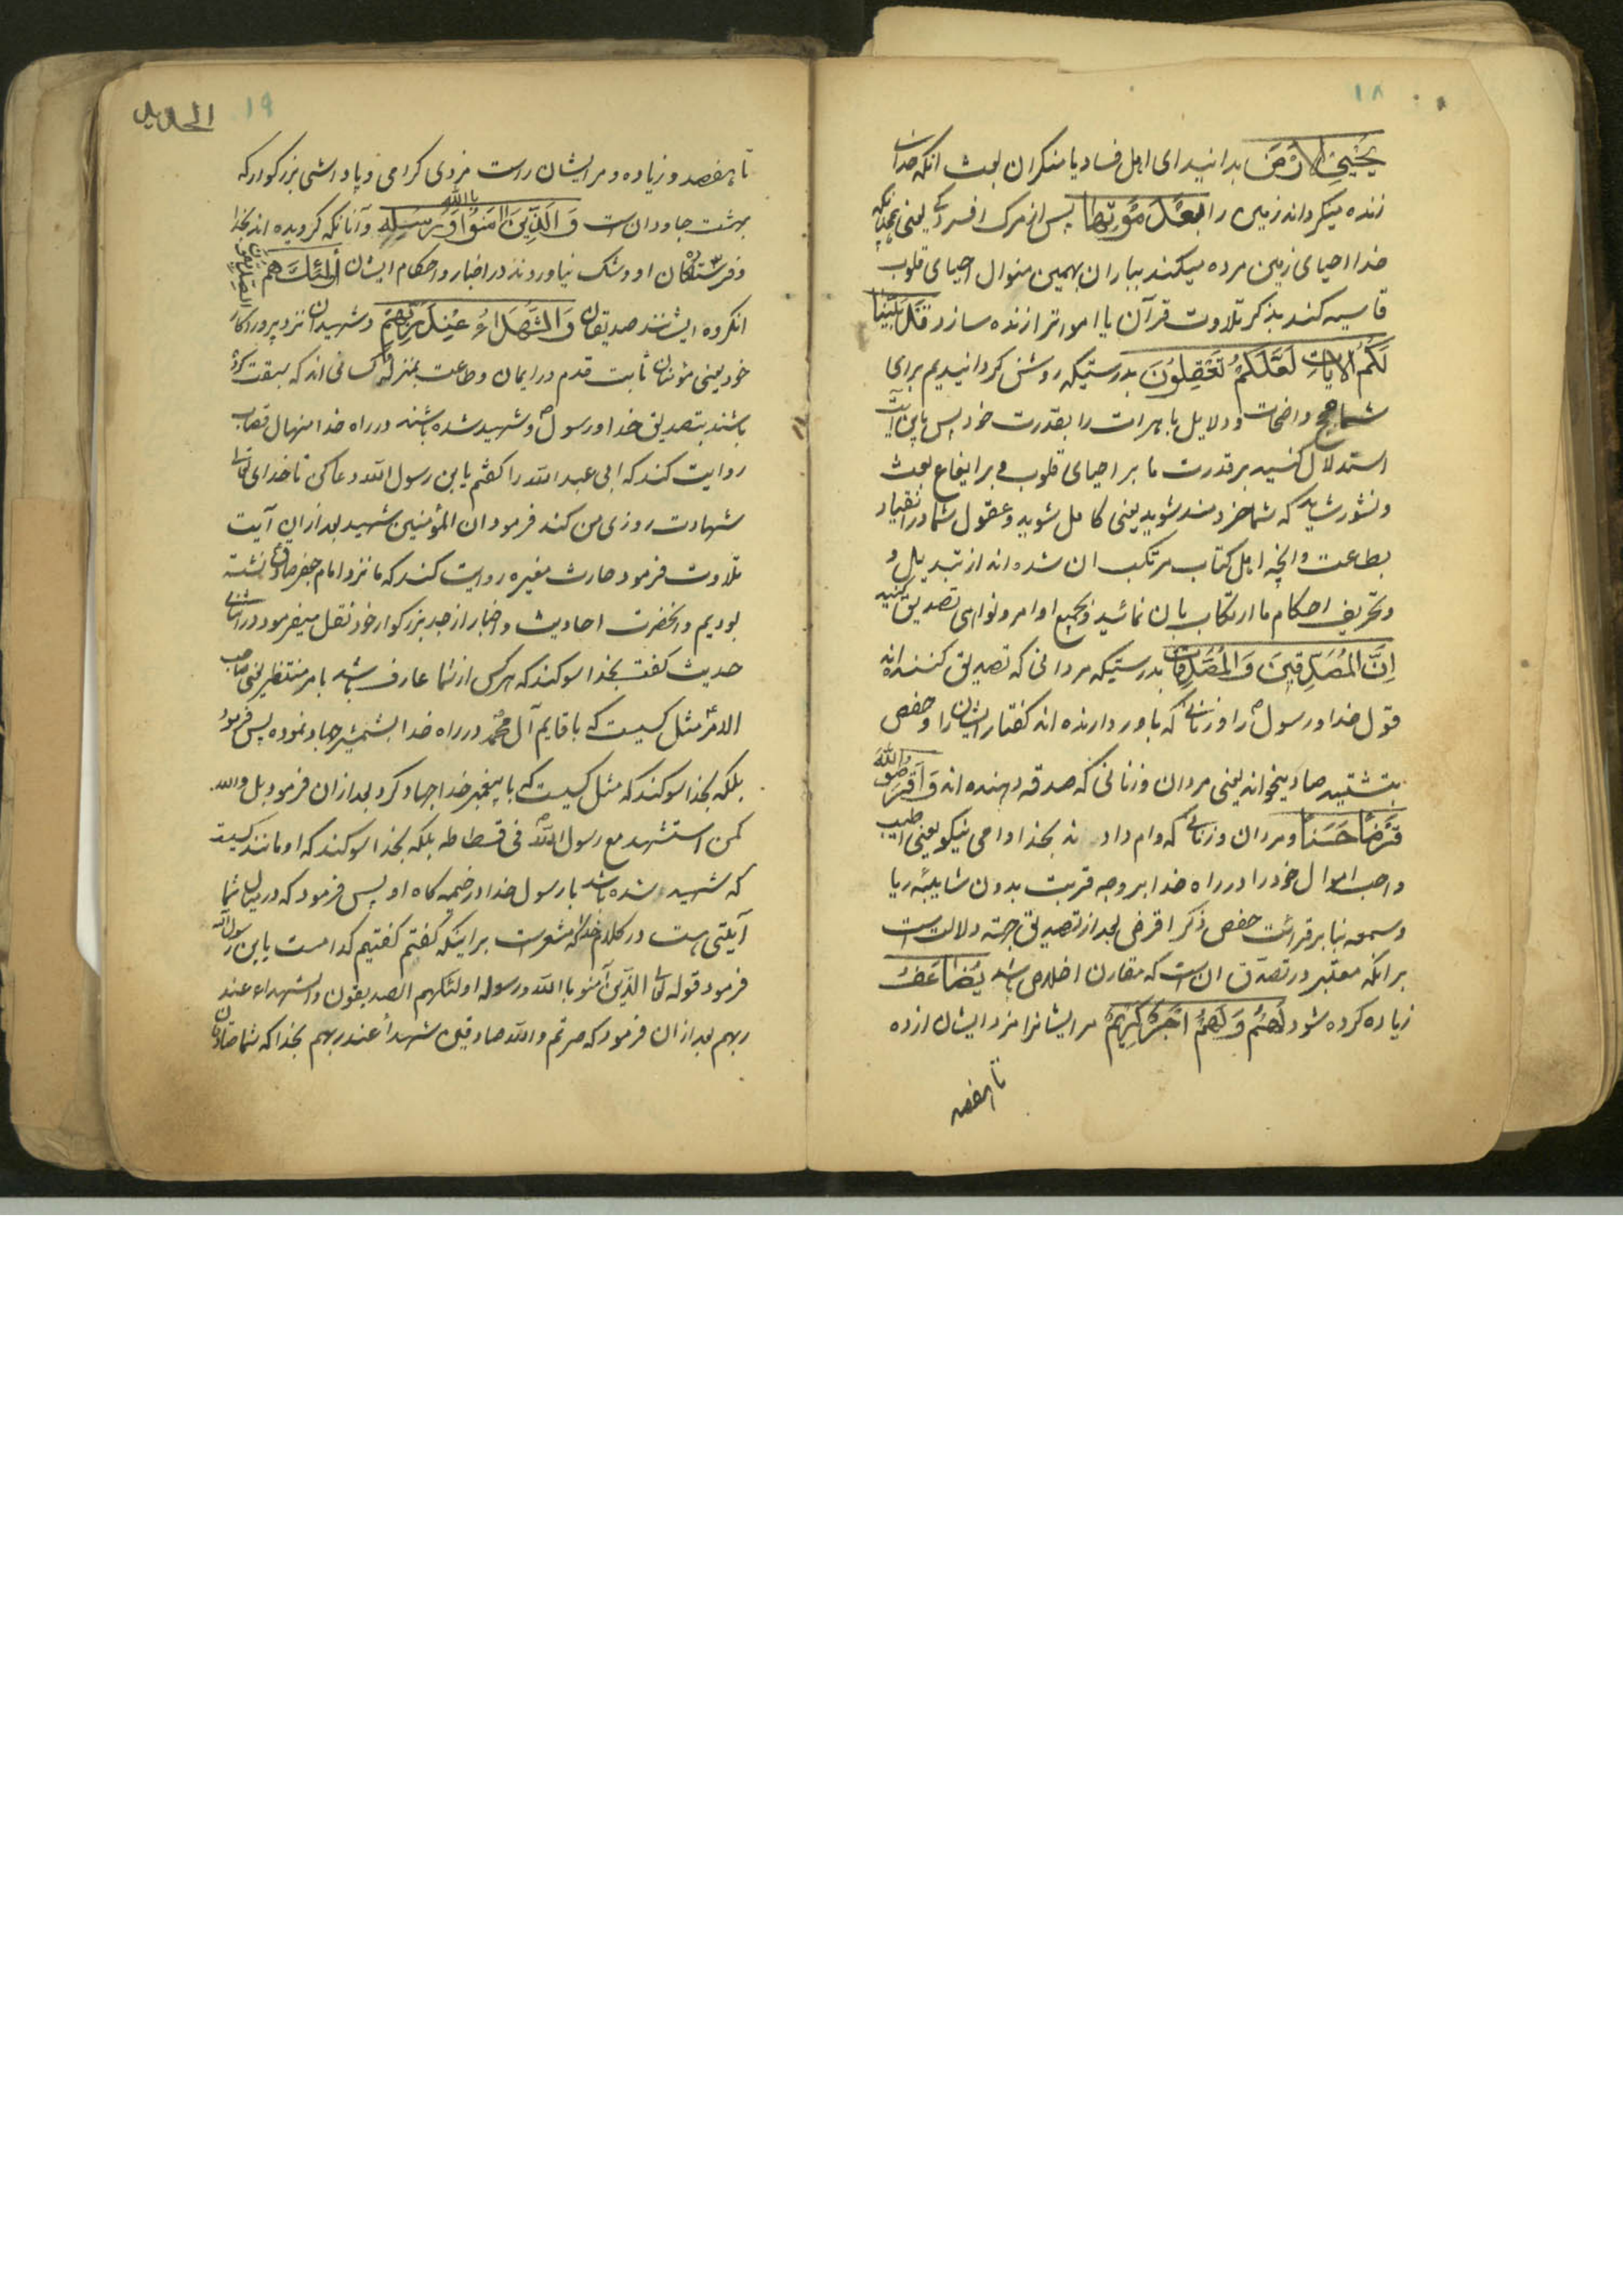 ۱۸
یحیی الارض بدانید ای اهل فساد یا منکران بعث انکه خدای
زنده میکرداند زمین را بعد موتها پس از مرک و افسردکی یعنی همچنانکه
خدا احیای زمین مرده میکند بباران بهمین منوال احیای قلوب
قاسیه کند بذکر تلاوت قرآن یا اموات را زنده سازد قد بینا
لکم الایات لعلکم تعقلون بدرستیکه روشن کردانیدیم برای
شما حجج واضحات و دلایل باهرات را بقدرت خود پس باین آیت
استدلال کنید بر قدرت ما بر احیای قلوب و بر ایقاع بعث
و نشور شاید که شما خردمند شوید یعنی کامل شوید و عقول شما در انقیاد
بطاعت و انچه اهل کتاب مرتکب ان شده اند از تبدیل و
و تحریف احکام ما ارتکاب بان نمائید و بجمیع اوامر و نواهی تصدیق کنید
ان المصدقین و المصدقات بدرستیکه مردانی که تصدیق کننده اند
قول خدا و رسول را و زنانی که باور دارنده اند کفتار ایشان را و حفص
بتشدید صاد میخواند یعنی مردان و زنانی که صدقه دهنده اند و اقرضوا الله
قرضا حسنا و مردان و زنانی که وام دادند بخدا وامی نیکو یعنی اطیب
و احب اموال خود را در راه خدا بر وجه قربت بدون شایبه ریا
و سمعه بنا بر قرائت حفص ذکر اقرض بعد از تصدیق جهة دلالت است
بر انکه معتبر در تصدق ان است که مقارن اخلاص باشد یضاعف
زیاده کرده شود لهم و لهم اجر کریم مر ایشانرا مزد ایشان از ده
تا هفصد
۱۹
الحدید
تا هفصد و زیاده و مر ایشان راست مزدی کرامی و پاداشی بزرکوار که
بهشت جاودان است و الذین امنوا بالله و رسله و آنانکه کرویده اند بخدا
و فرستاده کان او و شک نیاوردند در اخبار و احکام ایشان اولئک هم الصدیقون
انکروه ایشانند صدیقان و الشهداء عند ربهم و شهیدان نزد پروردکار
خود یعنی مؤمنان ثابت قدم در ایمان و طاعت بمنزله کسانی اند که سبقت کرده
باشند بتصدیق خدا و رسول و شهید شده باشند در راه خدا منهال قصاب
روایت کند که ابی عبدالله را کفتم یابن رسول الله دعا کن تا خدای تعالی
شهادت روزی من کند فرمود ان المؤمنین شهید بعد از ان آیت
تلاوت فرمود حارث مغیره روایت کند که ما نزد امام جعفر صادق نشسته
بودیم و انحضرت احادیث و اخبار از جد بزرکوار خود نقل میفرمود در اثنای
حدیث کفت بخدا سوکند که هر کس از شما عارف باشد بامر منتظر یعنی صاحب
الامر مثل کسیست که با قایم آل محمد در راه خدا بشمشیر جهاد نموده پس فرمود
بلکه بخدا سوکند که مثل کسیست که با پیغمبر خدا جهاد کرد بعد از ان فرمود بل والله
کمن استشهد مع رسول الله فی فسطاطه بلکه بخدا سوکند که او مانند کسیست
که شهید شده باشد با رسول خدا در خیمه کاه او پس فرمود که در میان شما
آیتی هست در کلام خدا که مشعر است بر اینکه کفتم کفتیم کدام است یابن رسول الله
فرمود قوله تعالی الذین آمنو باالله و رسوله اولئکهم الصدیقون و الشهداء عند
ربهم بعد از ان فرمود که صرتم والله صادقین شهداً عند ربهم بخدا که شما صادقان